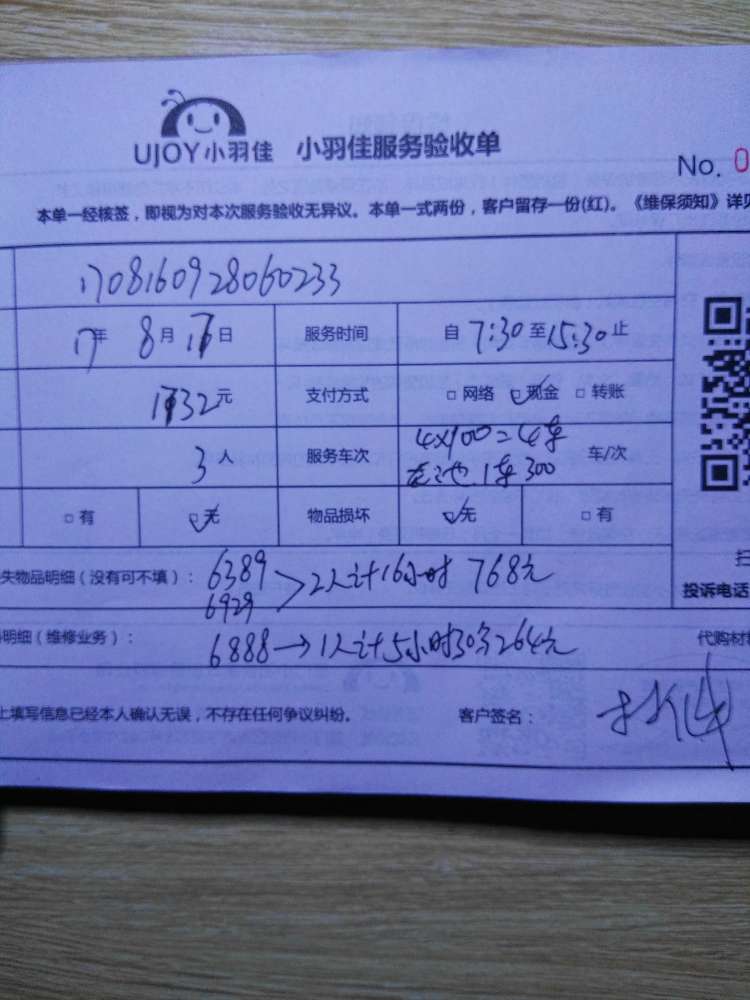 UJOY小羽佳 小羽佳服务验收单
No. 0
本单一经核签，即视为对本次服务验收无异议。本单一式两份，客户留存一份(红)。《维保须知》详见
1708160928060233
17年 8月 17日 服务时间 自 7:30 至 15:30 止
1732元 支付方式 网络 现金 转账
3人 服务车次 4×100=4车 车/次
1车300
有 无 物品损坏 无 有
失物品明细（没有可不填）： 6389 2人计16小时 768元
6929
明细（维修业务）： 6888→1人计5小时30分264元
扫
投诉电话
代购材
上填写信息已经本人确认无误，不存在任何争议纠纷。 客户签名：